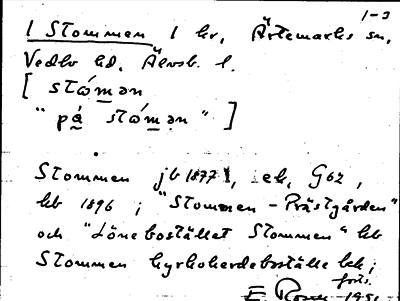 1-3
1 Stommen 1 hr, Ärtemarks sn,
Vedbo hd. Älvsb. l.
[ stómən
" på stómən " ]
Stommen jb 1877, ek, G62,
kb 1896; "Stommen-Prästgården"
och "Lönebostället Stommen" kb
Stommen kyrkoherdeboställe
forts.
E. 1951